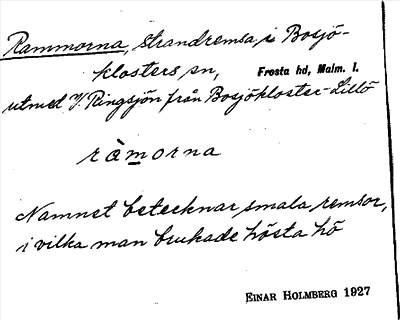 Rammorna, strandremsa, i Bosjö-
klosters sn, Frosta hd, Malm. l.
utmed V. Ringsjön från Bosjökloster-Lillö
ràmorna
Namnet betecknar smala remsor,
i vilka man brukade hösta hö
EINAR HOLMBERG 1927